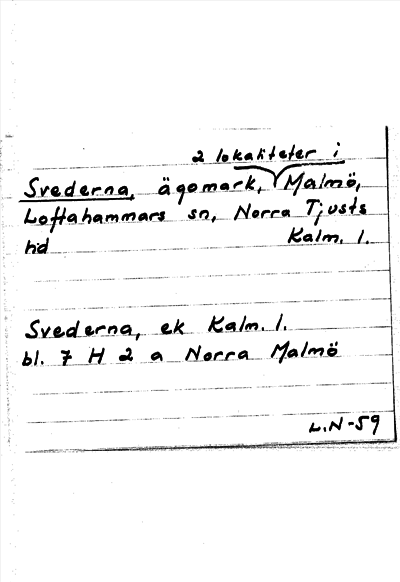 2 lokaliteter i
Svederna, ägomark, Malmö,
Loftahammars sn, Norra Tjusts
hd Kalm. l.
Svederna, ek Kalm. l.
bl. 7 H 2 a Norra Malmö
L.N-59